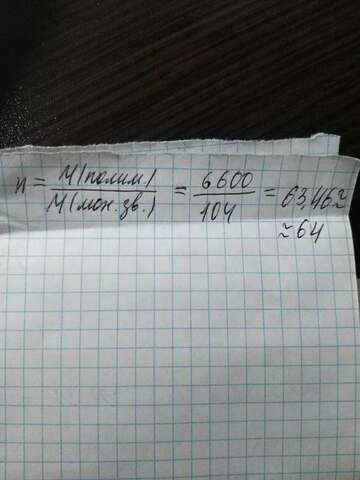 n = M(полим.) / M(мон. зв.) = 6600 / 104 = 63,46 ≈
≈ 64